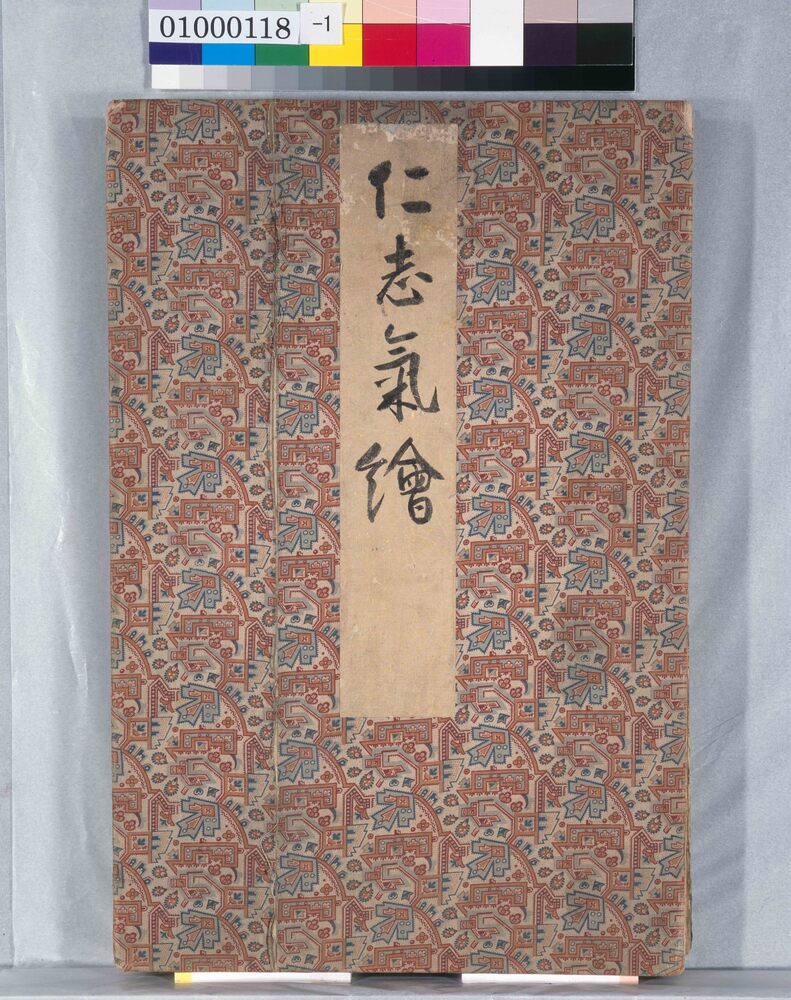 01000118 -1
仁志氣繪